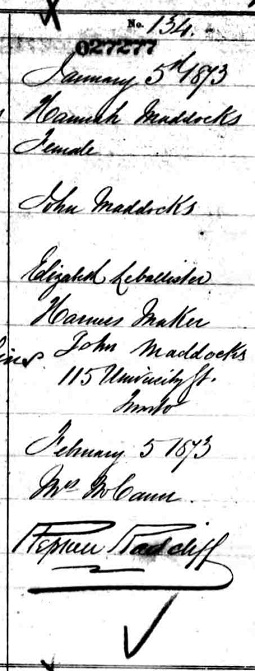 No. 134.
027277
January 5th 1873
Hannah Maddocks
Female
John Maddocks
Elizabeth
Harness Maker
John Maddocks
115 University St.
February 5 1873
Mrs McCann
Radcliff